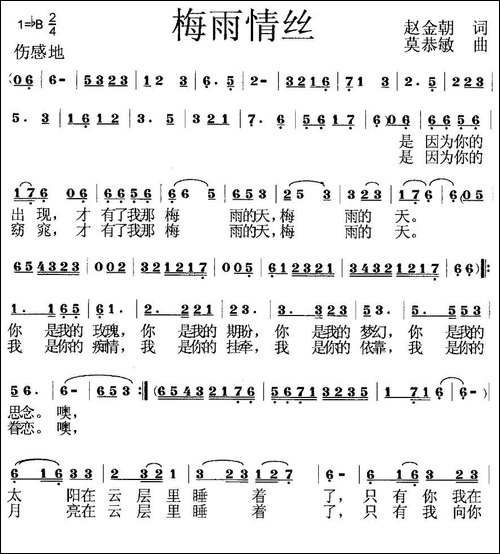 梅雨情丝
1=B 2/4
赵金朝 词
伤感地
莫恭敏 曲
(06|6-|5323|123|3.5|2123|6-|6-|
5.3|1612|3.5|321|7.6|5656|6)06|6656|
是 因为你的
是 因为你的
176 06|6656|66 5|6503|25 3|323|176|6(05|
出现,才有了我那梅 雨的天,梅 雨的天。
窈窕,才有了我那梅 雨的天,梅 雨的天。
654323|002|321217|005|612321|34321217|66):|
1. 165|61.|2. 221|23.|3. 323|53.|5. 553|
你 是我的玫瑰,你 是我的期盼,你 是我的梦幻,你 是我的
我 是你的痴情,我 是你的挂牵,我 是你的依靠,我 是你的
56.|6-|653:|(65432176|56713235|1 716|6-)|
思念。噢,
眷恋。噢,
6 1633|2 321|3 23127|6-|6 1633|
太 阳在云层里睡 着 了,只有你我在
月 亮在云层里睡 着 了,只有我向你